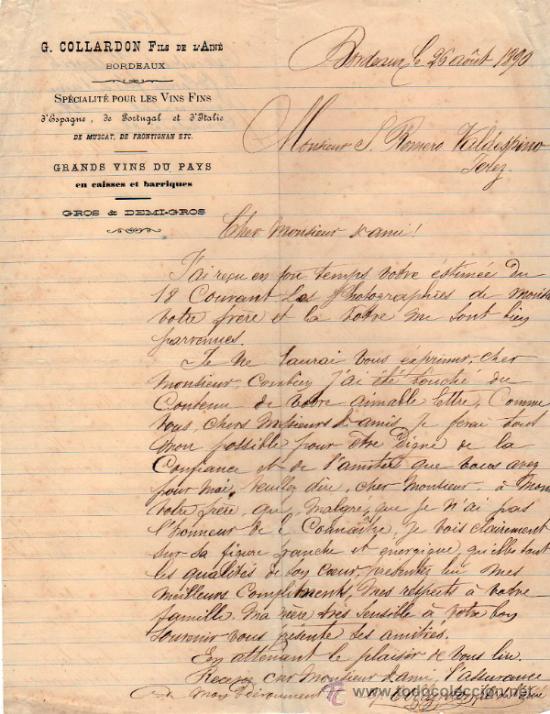 G. COLLARDON FILS DE L'AINÉ
BORDEAUX
SPÉCIALITÉ POUR LES VINS FINS
d'Espagne, de Portugal et d'Italie
DE MUSCAT, DE FRONTIGNAN ETC.
GRANDS VINS DU PAYS
en caisses et barriques
GROS & DEMI-GROS
Bordeaux le 26 août 1890
Monsieur S. Romero Valdespino
Jerez
Cher Monsieur & ami!
J'ai reçu en son temps votre estimée du
18 Courant Les Photographies de
votre frère et la vôtre me sont bien
parvenues.
Je ne saurai vous exprimer, cher
Monsieur combien j'ai été touché du
Contenu de votre aimable lettre, Comme
vous, chers Messieurs & amis, je ferai tout
mon possible pour être digne de la
Confiance et de l'amitié que vous avez
pour moi, veuillez dire, cher Monsieur à
votre frère, que malgré que je n'ai pas
l'honneur de le Connaître, je vois clairement
sur sa figure franche et énergique, tout
les qualités de son cœur, présentez lui mes
meilleurs Compliments, mes respects à votre
famille. Ma mère très sensible à votre bon
souvenir vous présente ses amitiés.
En attendant le plaisir de vous lire.
Recevez cher Monsieur & ami, l'assurance
de mon dévouement
todocoleccion
www.todocoleccion.net